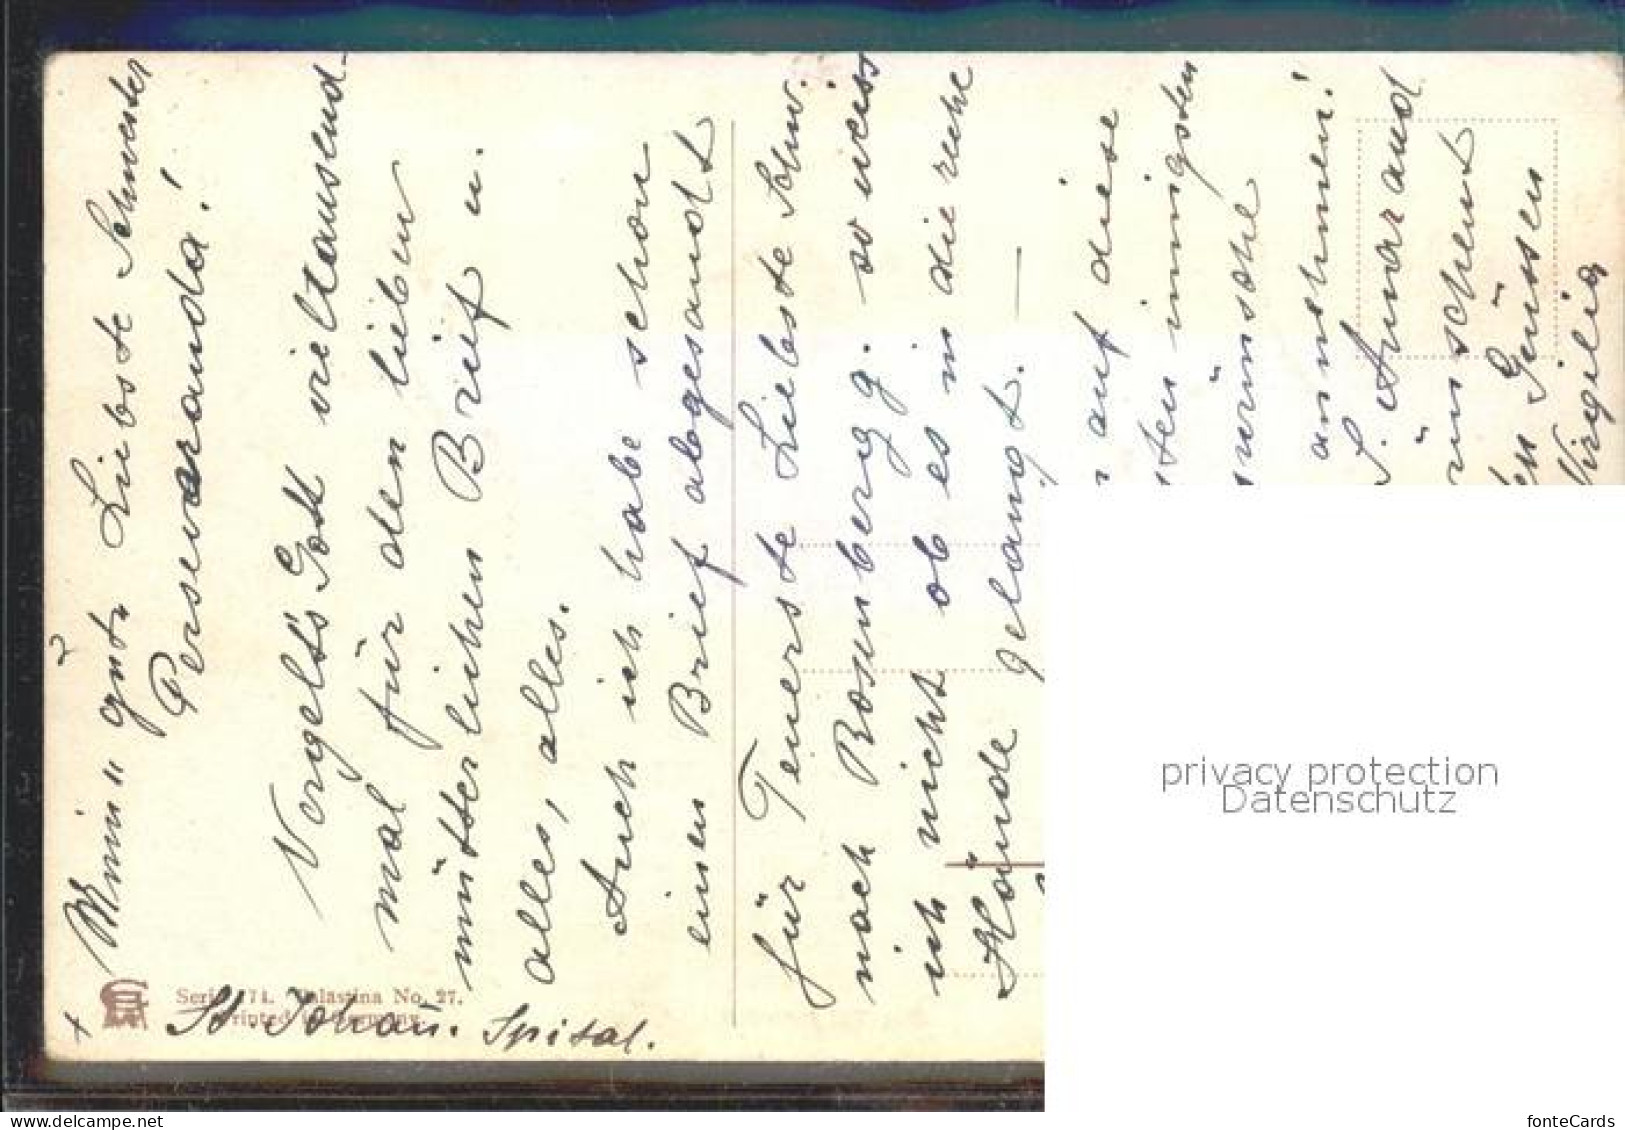 Meine gute Liebste Schwester
Perseveranda!
Vergelt's Gott vieltausend-
mal für den lieben
mütterlichen Brief u.
alles, alles.
Auch ich habe schon
einen Brief abgesandt
für Teuerste Liebste Schw.
nach Rosenberg. so weiss
ich nicht ob es in die rechte
Hände gelangt. —
auf diese
innigsten
wünsche
annehmen!
S. Amarand
wünschend
Grüssen
Virgilia
St. Johañ. Spital.
Serie 74. Palästina No. 27.
Printed in Germany.
privacy protection
Datenschutz
www.delcampe.net
fonteCards